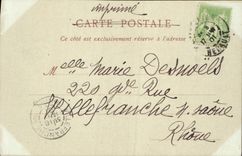 imprimé
CARTE POSTALE
Ce côté est exclusivement réservé à l'adresse
Melle Marie Desnoëls
220 Rue
Villefranche s/ saône
Rhône